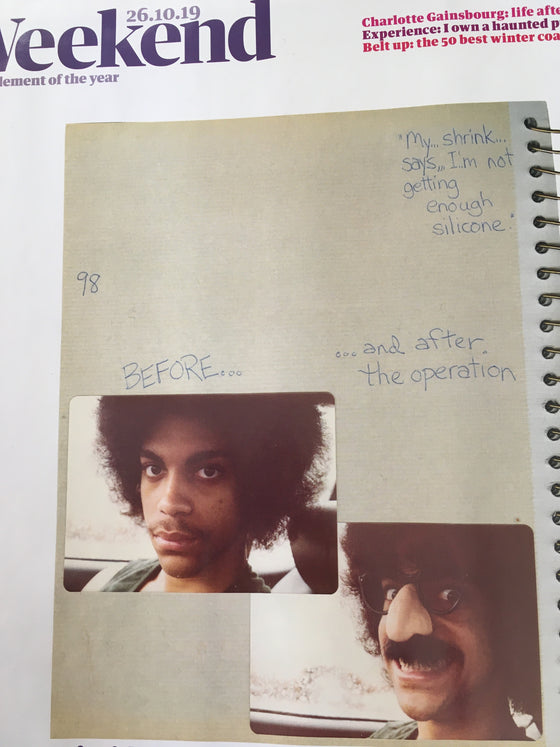 Weekend
26.10.19
lement of the year
Charlotte Gainsbourg: life afte
Experience: I own a haunted p
Belt up: the 50 best winter coa
"My... shrink...
says,,, I'm not
getting
enough
silicone."
98
BEFORE...
...and after
the operation